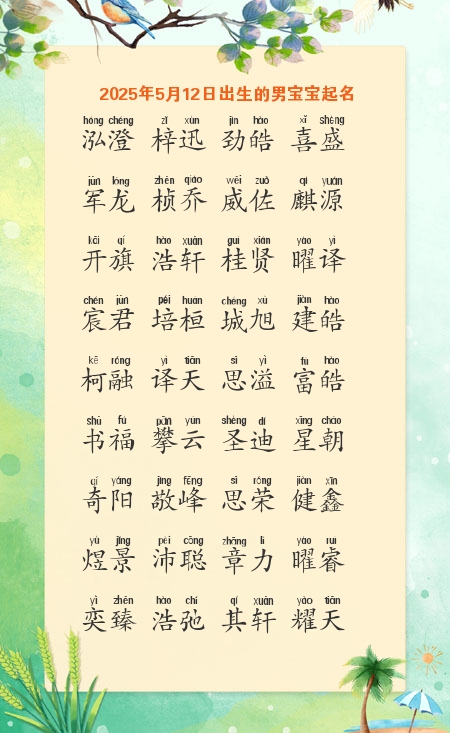 2025年5月12日出生的男宝宝起名
hóng chéng zǐ xùn jìn hào xǐ shèng
泓澄 梓迅 劲皓 喜盛
jūn lóng zhēn qiáo wēi zuǒ qí yuán
军龙 桢乔 威佐 麒源
kāi qí hào xuān guì xián yào yì
开旗 浩轩 桂贤 曜译
chén jūn péi huán chéng xù jiàn hào
宸君 培桓 城旭 建皓
kē róng yì tiān sī yì fù hào
柯融 译天 思溢 富皓
shū fú pān yún shèng dí xīng cháo
书福 攀云 圣迪 星朝
qí yáng jìng fēng sī róng jiàn xīn
奇阳 敬峰 思荣 健鑫
yù jǐng pèi cōng zhāng lì yào ruì
煜景 沛聪 章力 曜睿
yì zhēn hào chí qí xuān yào tiān
奕臻 浩弛 其轩 耀天